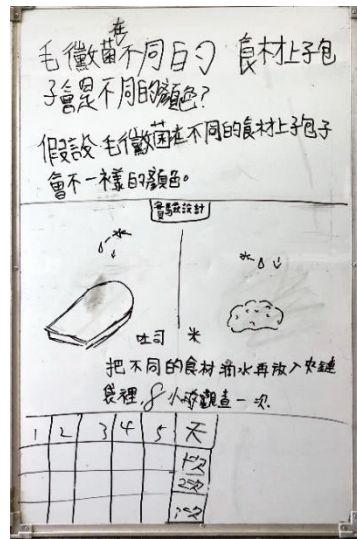 毛黴菌在不同白勺 食材上子包
子會是不同的顏色?
假設:毛黴菌在不同的食材上子包子
會不一樣的顏色。
實驗設計
水
水
吐司 米
把不同的食材滴水再放入夾鏈
袋裡.8小時觀查一次.
1 2 3 4 5 天
1次
2次
3次